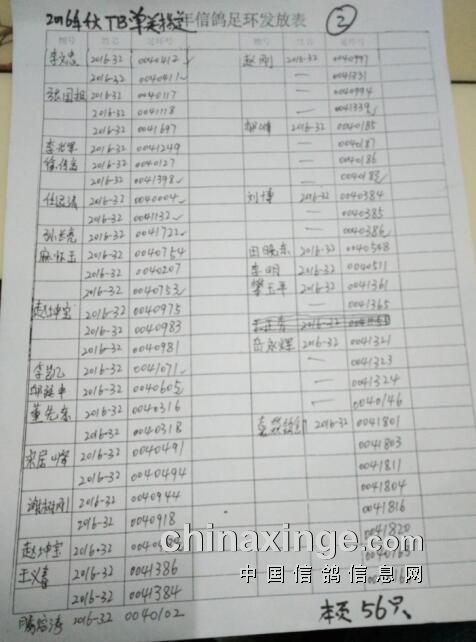 2016年秋TB单关指定年信鸽足环发放表 ②
棚号 姓名 足环号 棚号 姓名 足环号
2016-32 0040412 赵刚 2016-32 0040997
2016-32 0040411 — 0041331
张国祖 2016-32 0040117 — 0040994
2016-32 0041118 — 0041339
2016-32 0041697 2016-32 0040185
2016-32 0041249 — 0040187
徐传高 2016-32 0040127 — 0040186
2016-32 0041398 — 0040188
任远清 2016-32 0040004 刘博 2016-32 0040384
2016-32 0041132 — 0040385
孙长亮 2016-32 0041722 — 0040386
麻怀玉 2016-32 0040754 田晓东 2016-32 0040508
2016-32 0040207 李明 2016-32 0040511
2016-32 0040753 樊玉平 2016-32 0041361
赵坤宝 2016-32 0040975 — 0041365
2016-32 0040983 2016-32
2016-32 0040981 岳永辉 2016-32 0041321
— 0041323
2016-32 0041071 — 0041324
2016-32 0040605 — 0040146
董先东 2016-32 0040316 2016-32 0041801
2016-32 0040318 0041803
宋居 2016-32 0040491 0041811
2016-32 0040494 0041804
2016-32 0040944 0041816
2016-32 0040918 0041820
赵坤宝 2016-32
王义春 2016-32 0041386
2016-32 0041384
2016-32 0040102 本页56只
chinaxinge.com
中国信鸽信息网